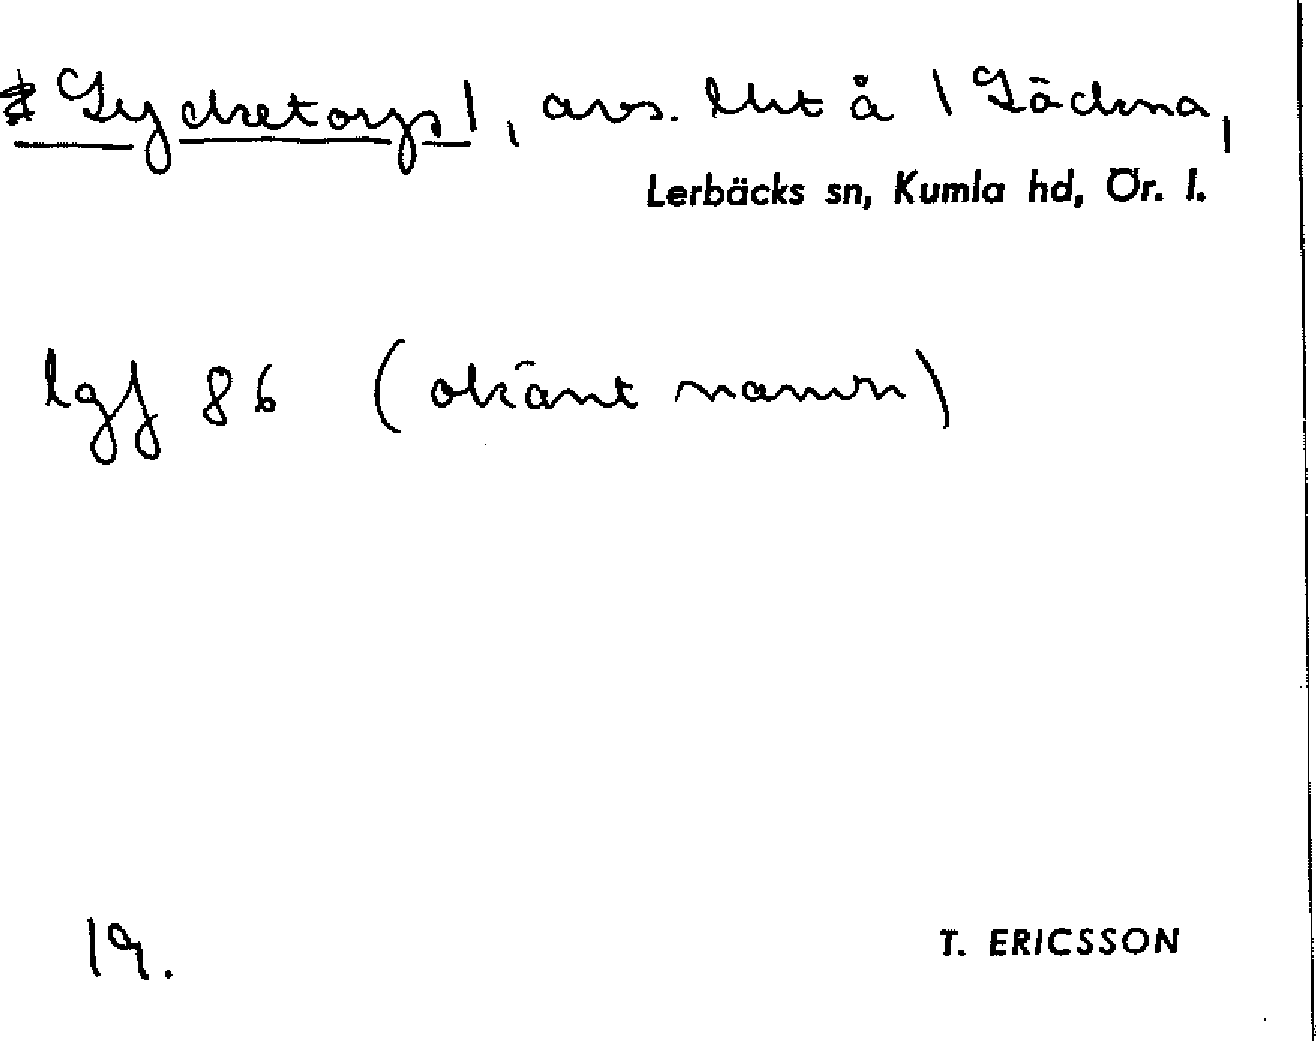 Lycketorp, avs. lht å 1 Läckna,
Lerbäcks sn, Kumla hd, Ör. l.
lgf 86 (okänt namn)
19.
T. ERICSSON